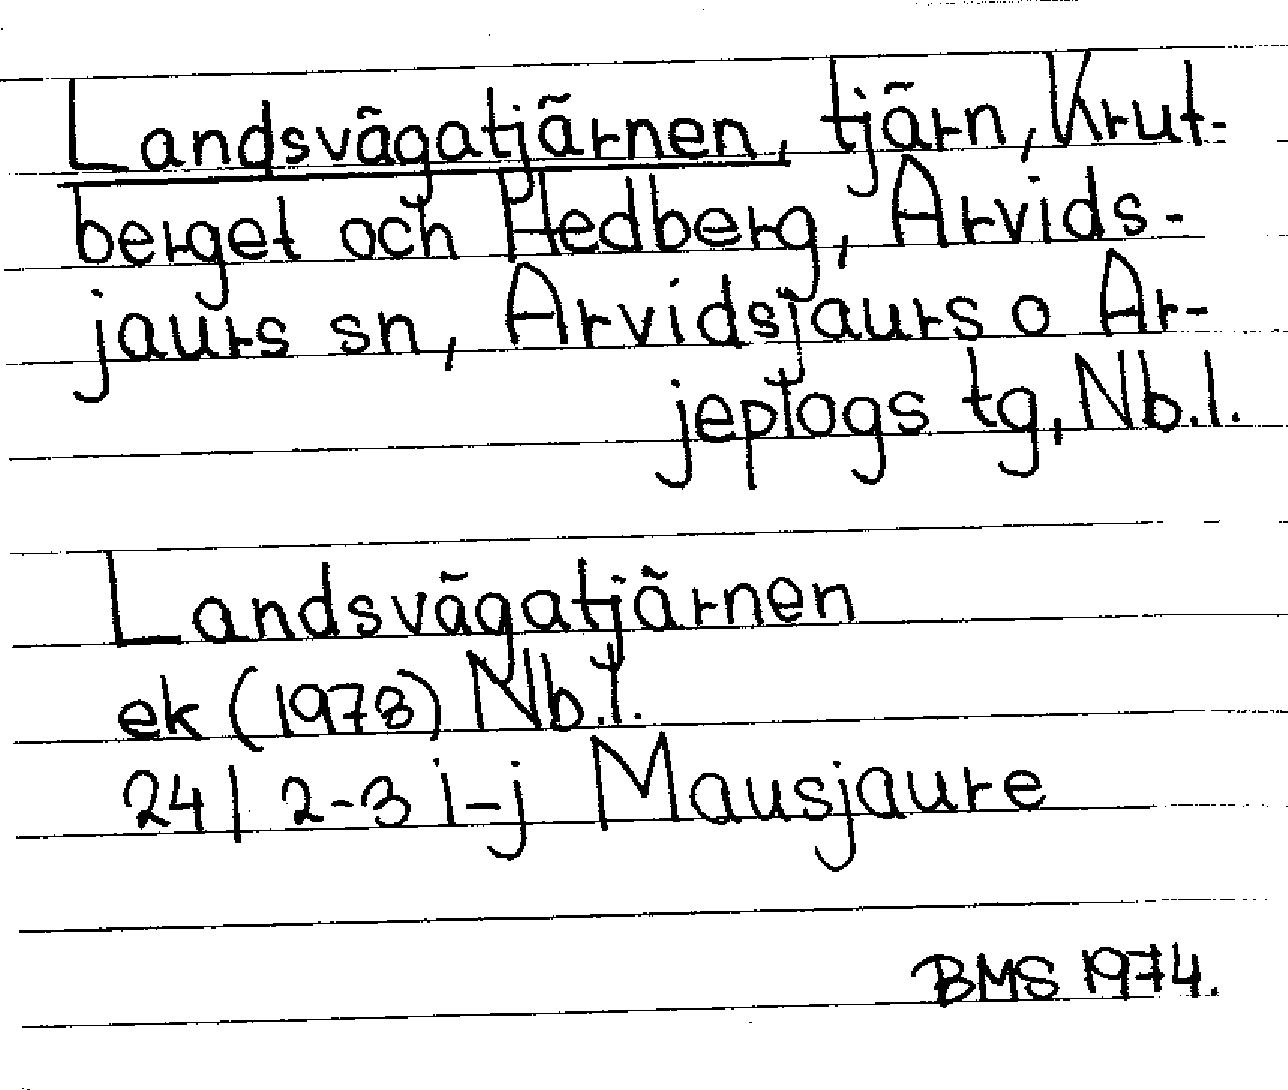 Landsvägatjärnen, tjärn, Krut-
berget och Hedberg, Arvids-
jaurs sn, Arvidsjaurs o Ar-
jeplogs tg, Nb.l.
Landsvägatjärnen
ek (1973) Nb.l.
24 I 2-3 i-j Mausjaure
BMS 1974.